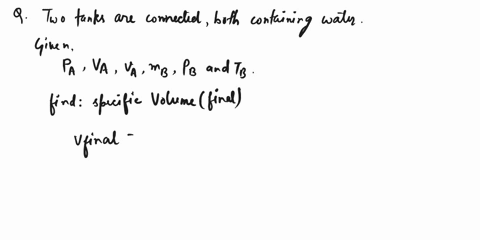 Q. Two tanks are connected, both containing water.
Given.
PA, VA, vA, mB, PB and TB.
find: specific Volume (final)
Vfinal -